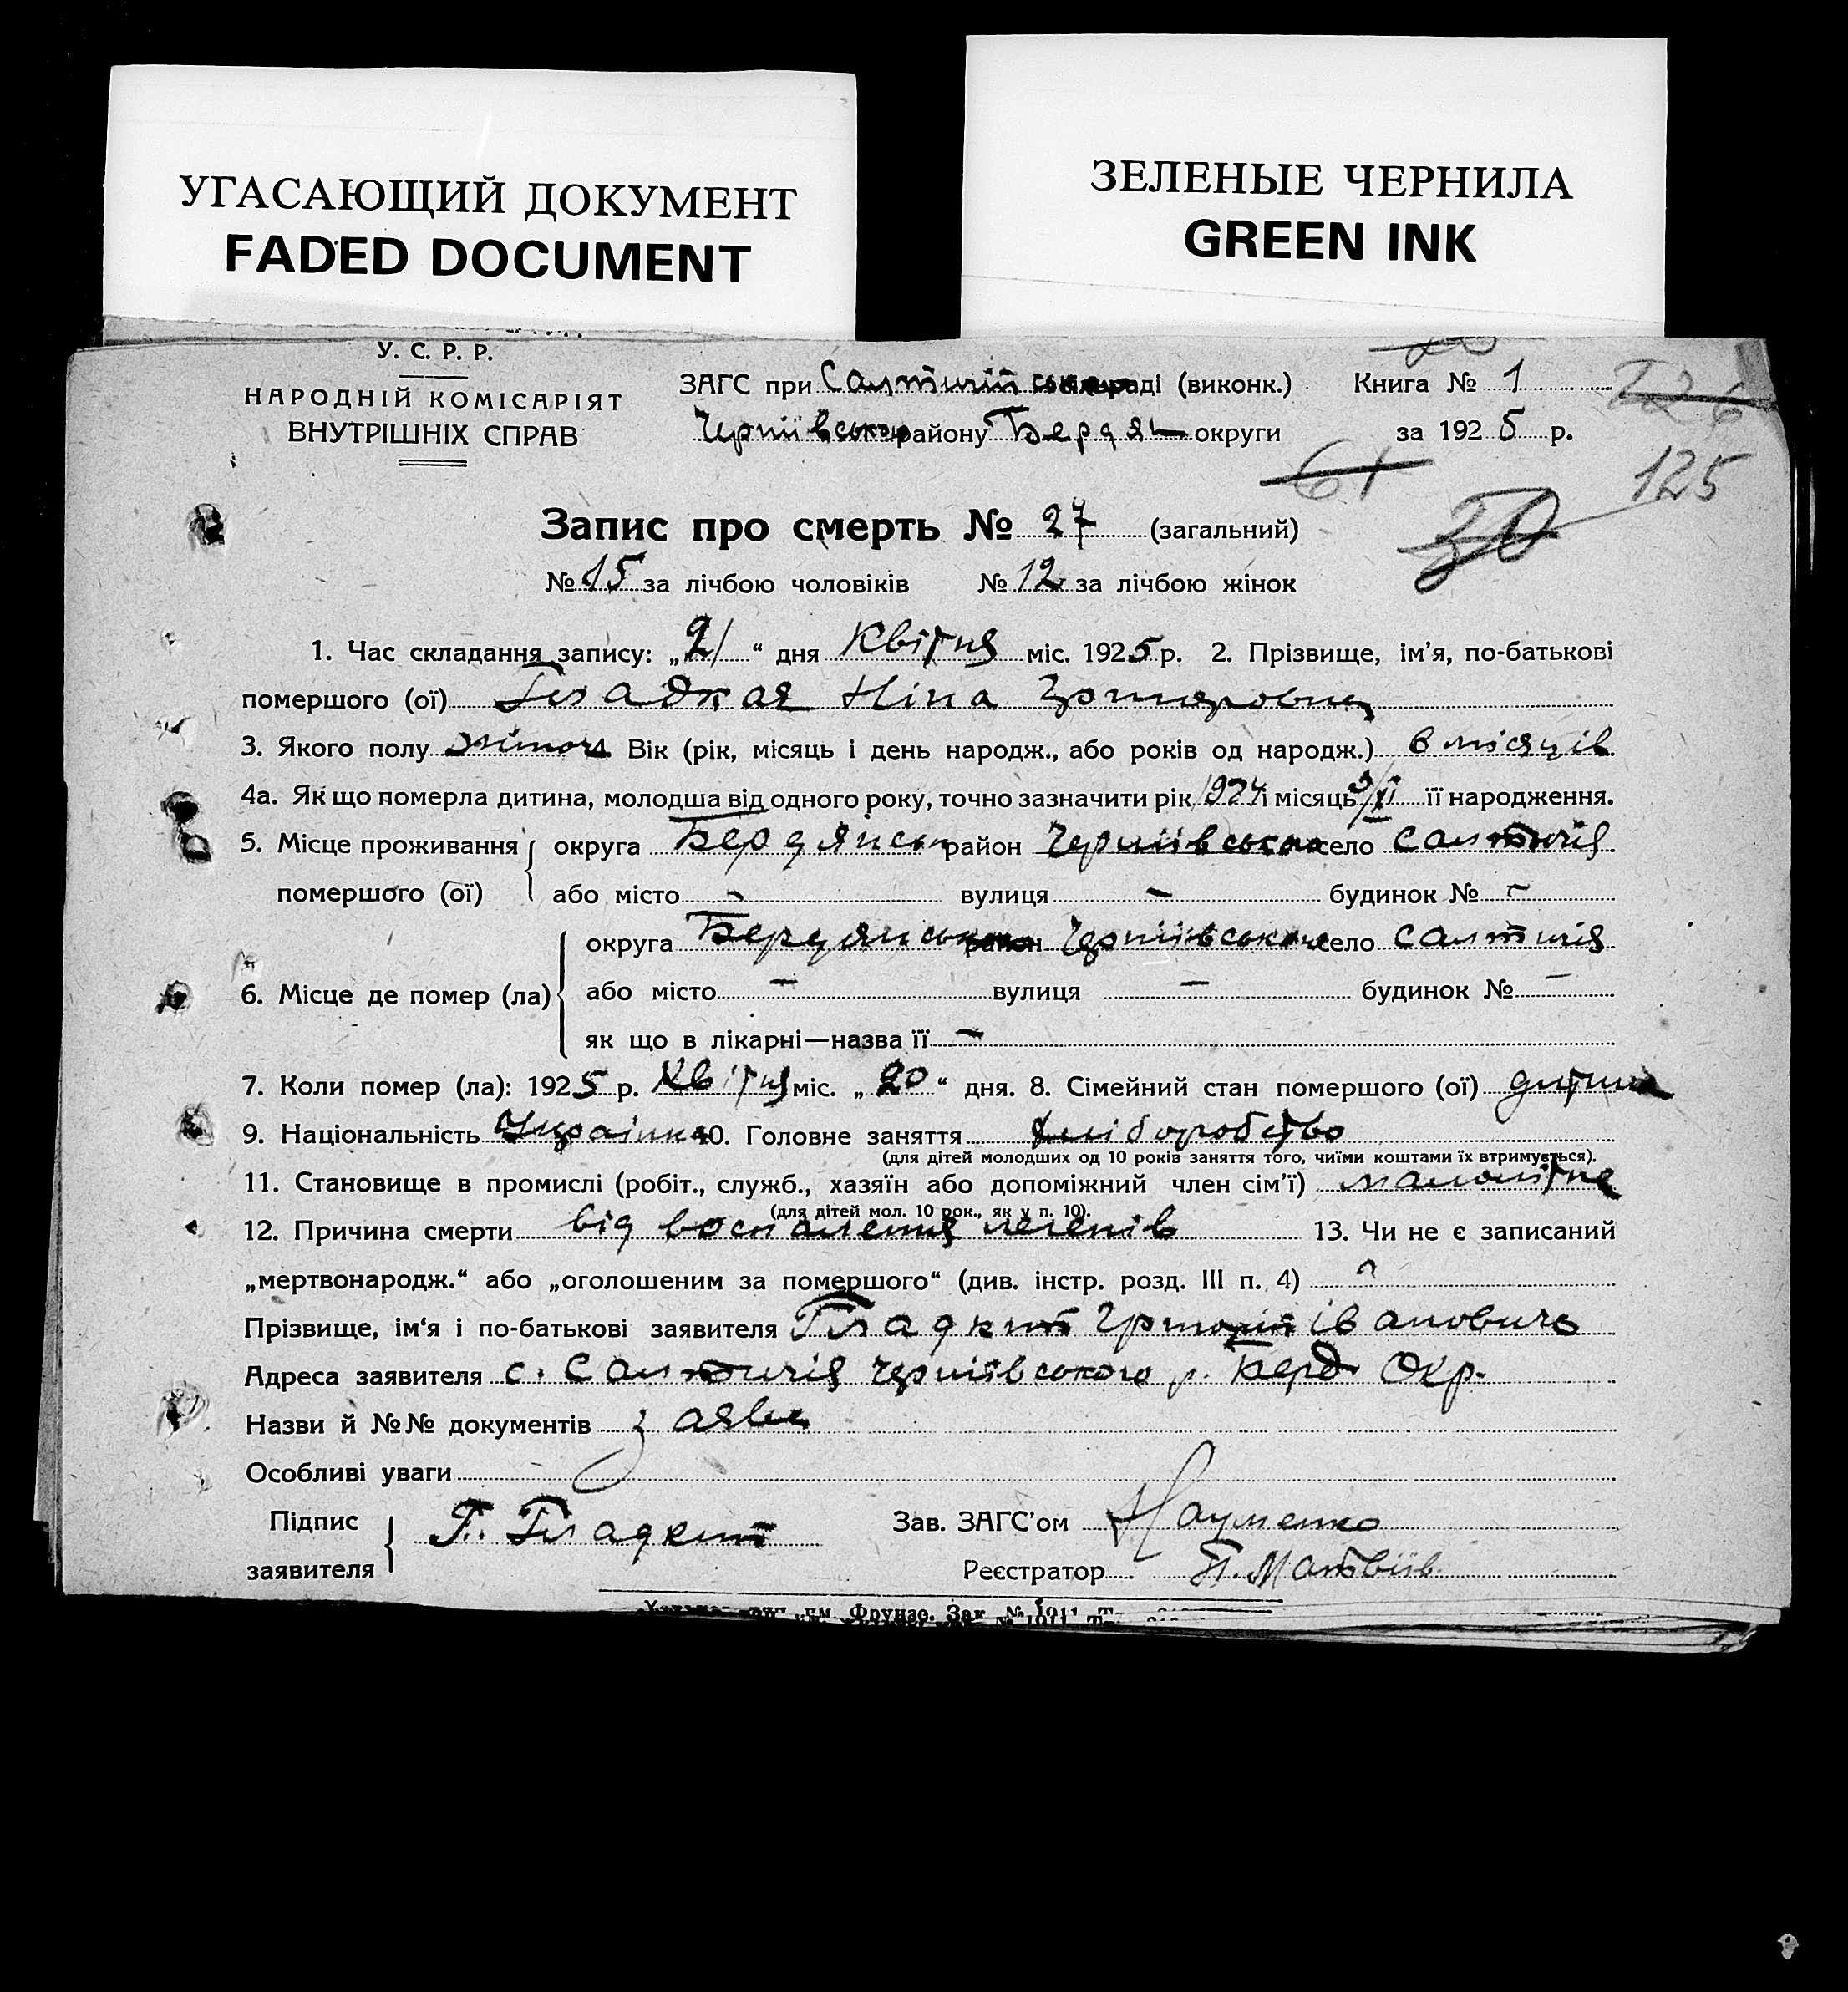 УГАСАЮЩИЙ ДОКУМЕНТ
FADED DOCUMENT
ЗЕЛЕНЫЕ ЧЕРНИЛА
GREEN INK
У. С. Р. Р.
НАРОДНІЙ КОМІСАРІЯТ
ВНУТРІШНІХ СПРАВ
ЗАГС при раді (виконк.) Книга № 1
району Бердян округи за 1925 р.
126
61
125
30
Запис про смерть № 27 (загальний)
№ 15 за лічбою чоловіків № 12 за лічбою жінок
1. Час складання запису: „21“ дня Квітня міс. 1925 р. 2. Прізвище, ім’я, по-батькові
помершого (ої) Гладкая Ніна
3. Якого полу жіноч 4. Вік (рік, місяць і день народж., або років од народж.) 6 місяців
4а. Як що померла дитина, молодша від одного року, точно зазначити рік 1924 і місяць її народження.
5. Місце проживання округа Бердянськ район Черніівського село Салтичія
помершого (ої) або місто - вулиця - будинок № -
округа Бердянського район Черніівського село Салтичія
6. Місце де помер (ла) або місто - вулиця - будинок № -
як що в лікарні—назва її -
7. Коли помер (ла): 1925 р. Квітня міс. „20“ дня. 8. Сімейний стан помершого (ої) дитина
9. Національність Українка 10. Головне заняття Хліборобство
(для дітей молодших од 10 років заняття того, чиїми коштами їх втримується).
11. Становище в промислі (робіт., служб., хазяїн або допоміжний член сім’ї) малолітне
(для дітей мол. 10 рок., як у п. 10).
12. Причина смерти від воспаления легенів 13. Чи не є записаний
„мертвонародж.“ або „оголошеним за помершого“ (див. інстр. розд. III п. 4)
Прізвище, ім‘я і по-батькові заявителя Гладкий Григорій Івановичь
Адреса заявителя с. Салтичія Черніівського р. Берд Окр.
Назви й №№ документів заява
Особливі уваги
Підпис
заявителя Г. Гладкий
Зав. ЗАГС’ом Науменко
Реєстратор П. Матвіів
им. Фрунзе. Зак. № 1011